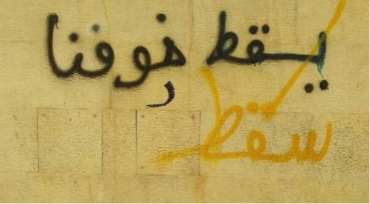 يسقط خوفنا
سقط